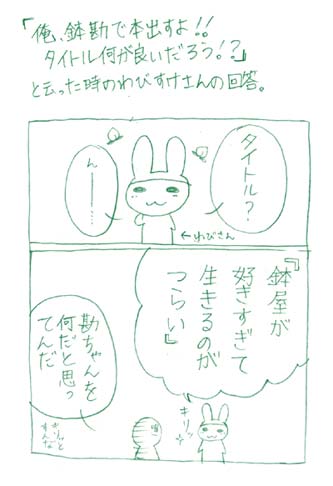 「俺、鉢勘で本出すよ!!
タイトル何が良いだろう!?」
と云った時のわびすけさんの回答。
タイトル?
んー……
←わびさん
『鉢屋が
好きすぎて
生きるのが
つらい』
キリッ
勘ちゃんを
何だと思っ
てんだ
キリッと
すんな